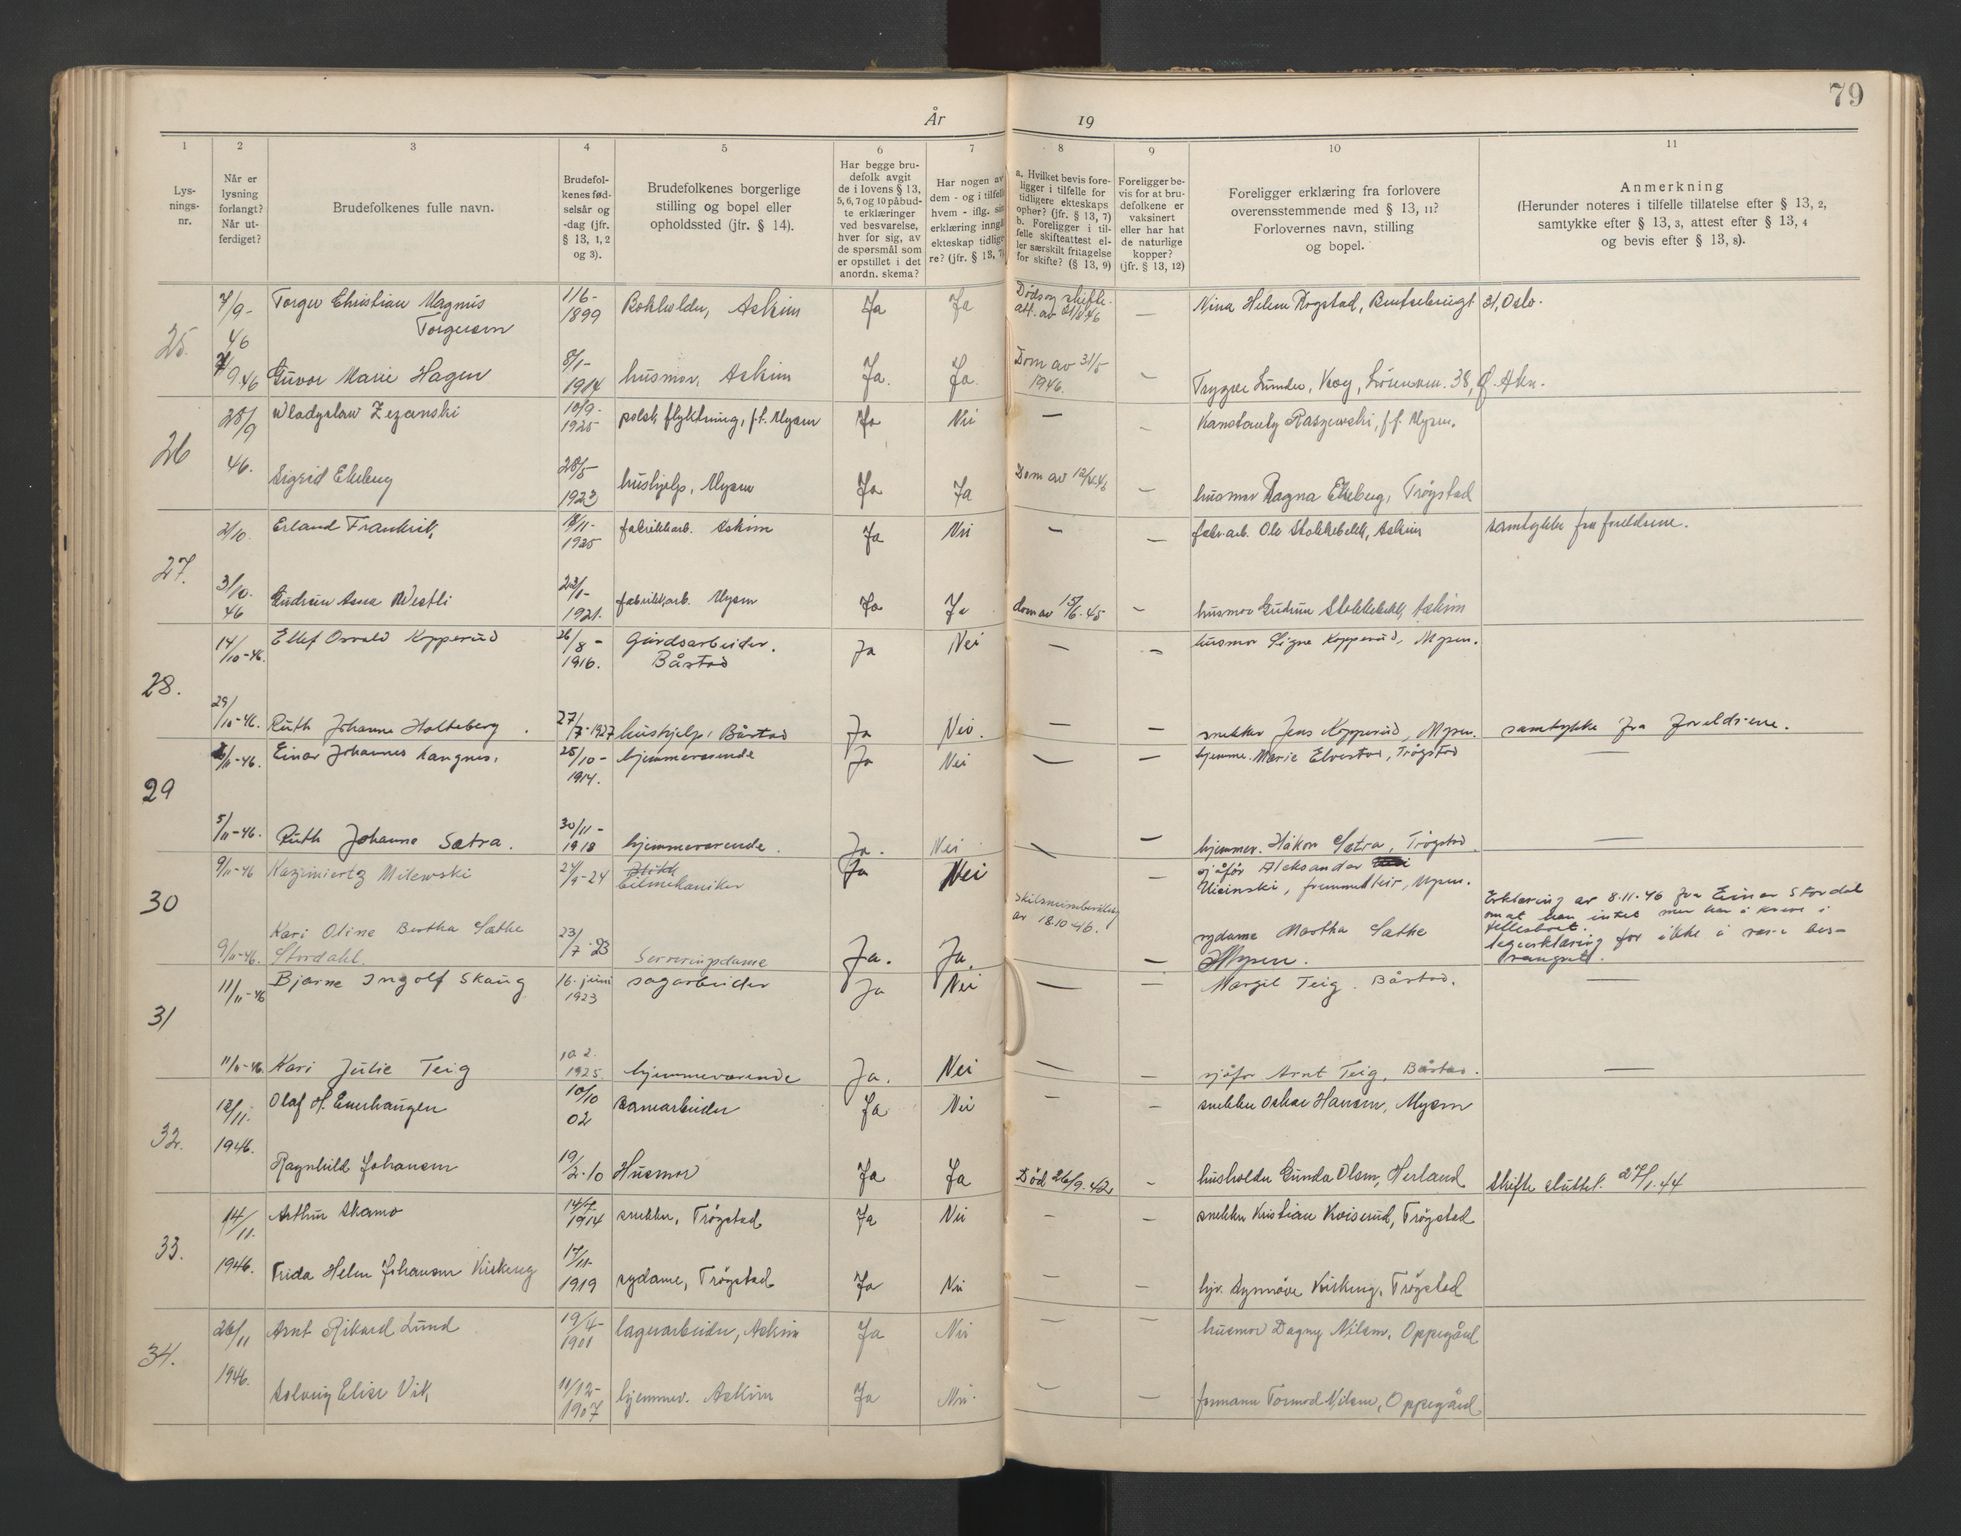 79
År 19
1 2 3 4 5 6 7 8 9 10 11
Lys-
nings-
nr.
Når er
lysning
forlangt?
Når ut-
ferdiget?
Brudefolkenes fulle navn.
Brudefol-
kenes fød-
selsår og
-dag (jfr.
§ 13, 1, 2
og 3).
Brudefolkenes borgerlige
stilling og bopel eller
opholdssted (jfr. § 14).
Har begge bru-
defolk avgit
de i lovens § 13,
5, 6, 7 og 10 påbud-
te erklæringer
ved besvarelse,
hver for sig, av
de spørsmål som
er opstillet i det
anordn. skema?
Har nogen av
dem - og i tilfelle
hvem - iflg. sin
erklæring inngå
ekteskap tidlige-
re? (jfr. § 13, 7)
a. Hvilket bevis fore-
ligger i tilfelle for
tidligere ekteskaps
opher? (jfr. § 13, 7)
b. Foreligger i til-
felle skifteattest el-
ler særskilt fritagelse
for skifte? (§ 13, 9)
Foreligger be-
vis for at bru-
defolkene er
vaksinert
eller har hat
de naturlige
kopper?
(jfr. § 13, 12)
Foreligger erklæring fra forlovere
overensstemmende med § 13, 11?
Forlovernes navn, stilling
og bopel.
Anmerkning
(Herunder noteres i tilfelle tillatelse efter § 13, 2,
samtykke efter § 13, 3, attest efter § 13, 4
og bevis efter § 13, 8).
25. 7/9- 46 Torger Christian Magnus Torgersen 11 6- 1899 Bokholder, Askim Ja Ja Døds og skifte-
att. av — Nina Helene Rogstad, Bentsebrugt 31, Oslo.
7/9 46 Guvor Marie Hagen 8/1- 1914 husmor, Askim Ja. Ja. Dom av 31/5 1946. — Trygve Lunder, 38, Ø. Akn.
26 28/9 46. Wladyslaw Zezanski 10/9- 1925 polsk flyktning, f.l. Mysen Ja Nei — — Konstanty Raszewski, f.l. Mysen.
Sigrid Ekeberg 28/5- 1923 hushjelp, Mysen Ja Ja Dom av — husmor Ragna Ekeberg, Trøgstad
27. 2/10. Erland Frankrik, 18/11- 1925 fabrikkarb. Askim Ja Nei — — fabr.arb. Ole Stokkebekk, Askim samtykke fra foreldrene.
3/10. 46 Gudrun Anna Westli 1921. fabrikkarb. Mysen Ja Ja dom av 15/6.45 — husmor Gudrun Stokkebekk, Askim
28. 14/10-46. Ellef Osvald Kopperud 26/8- 1916. Gårdsarbeider. Båstad Ja Nei — — husmor Signe Kopperud, Mysen.
29/10-46. Ruth Johanne Holteberg. 27/7-1927 hushjelp, Båstad Ja Nei. — — snekker Jens Kopperud, Mysen. samtykke fra foreldrene.
29 /11-46. Einar Johannes Langnes. 25/10- 1914. hjemmeværende Ja Nei — — hjemme. Marie Elvestad, Trøgstad —
5/11-46. Ruth Johanne Sætra. 30/11- 1918 hjemmeværende. Ja. Nei — — hjemmev. Håkon Sætra, Trøgstad. —
30 9/11-46 Kazimiertz Milewski 24/9-24 bilmekaniker Ja Nei sjåfør Aleksander
Uicinski, fremmedleir, Mysen.
9/11-46. Kari Oline Bertha Sæthe
Stordahl. 23/7-23 Serveringsdame Ja. Ja. Skilsmissebevilling
av 18.10.46. — sydame Martha Sæthe
Mysen. Erklæring av 8.11.46 fra Einar Stordal
om at han intet mer har å kreve i
fellesboet.
Legeerklæring for ikke å være bes-
vangret.
31 11/11-46 Bjarne Ingolf Skaug 16. juni 1923 sagarbeider Ja Nei — — Margit Teig. Båstad. —
11/11-46. Kari Julie Teig 10.2. 1925. hjemmeværende Ja. Nei — — sjåfør Arnt Teig, Båstad. —
32. 12/11. 1946. Olaf H. Enerhaugen 10/10 02 banearbeider Ja Nei — — snekker Oskar Hansen, Mysen
Ragnhild Johansen 19/2.10 Husmor Ja Ja Død 26/9.42 — husholder Gunda Olsen, Herland skifte sluttet. d 7/1.44
33. 14/11. 1946. Arthur Skamo 14/7 1914 snekker, Trøgstad Ja Nei — — snekker Kristian Kviserud, Trøgstad
Frida Helen Johansen Kirkeng 17/11- 1919 sydame, Trøgstad Ja Nei — — hjv. Synnøve Kirkeng, Trøgstad
34. 26/11 1946. Arnt Rikard Lund 19/4- 1901 lagerarbeider, Askim Ja Nei — — husmor Dagny Nilsen, Oppegård
Solveig Elise Vik, 11/12- 1907 hjemmev. Askim Ja Nei. — — formann Tormod Nilsen, Oppegård